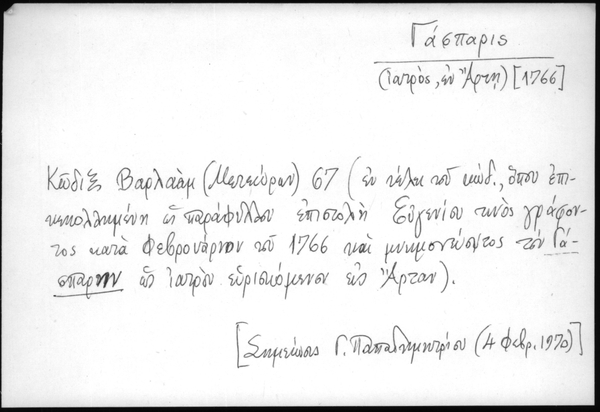 Γάσπαρις
(ἰατρὸς, ἐν Ἄρτῃ) [1766]
Κῶδιξ Βαρλαὰμ (Μετεώρων) 67 (ἐν τέλει τοῦ κώδ., ὅπου ἐπι-
κεκολλημένη ὡς παράφυλλον ἐπιστολὴ Εὐγενίου τινὸς γράφον-
τος κατὰ Φεβρουάριον τοῦ 1766 καὶ μνημονεύοντος τὸν Γά-
σπαριν ὡς ἰατρὸν εὑρισκόμενον εἰς Ἄρταν).
[Σημείωσις Γ. Παπαδημητρίου (4 Φεβρ. 1970)]